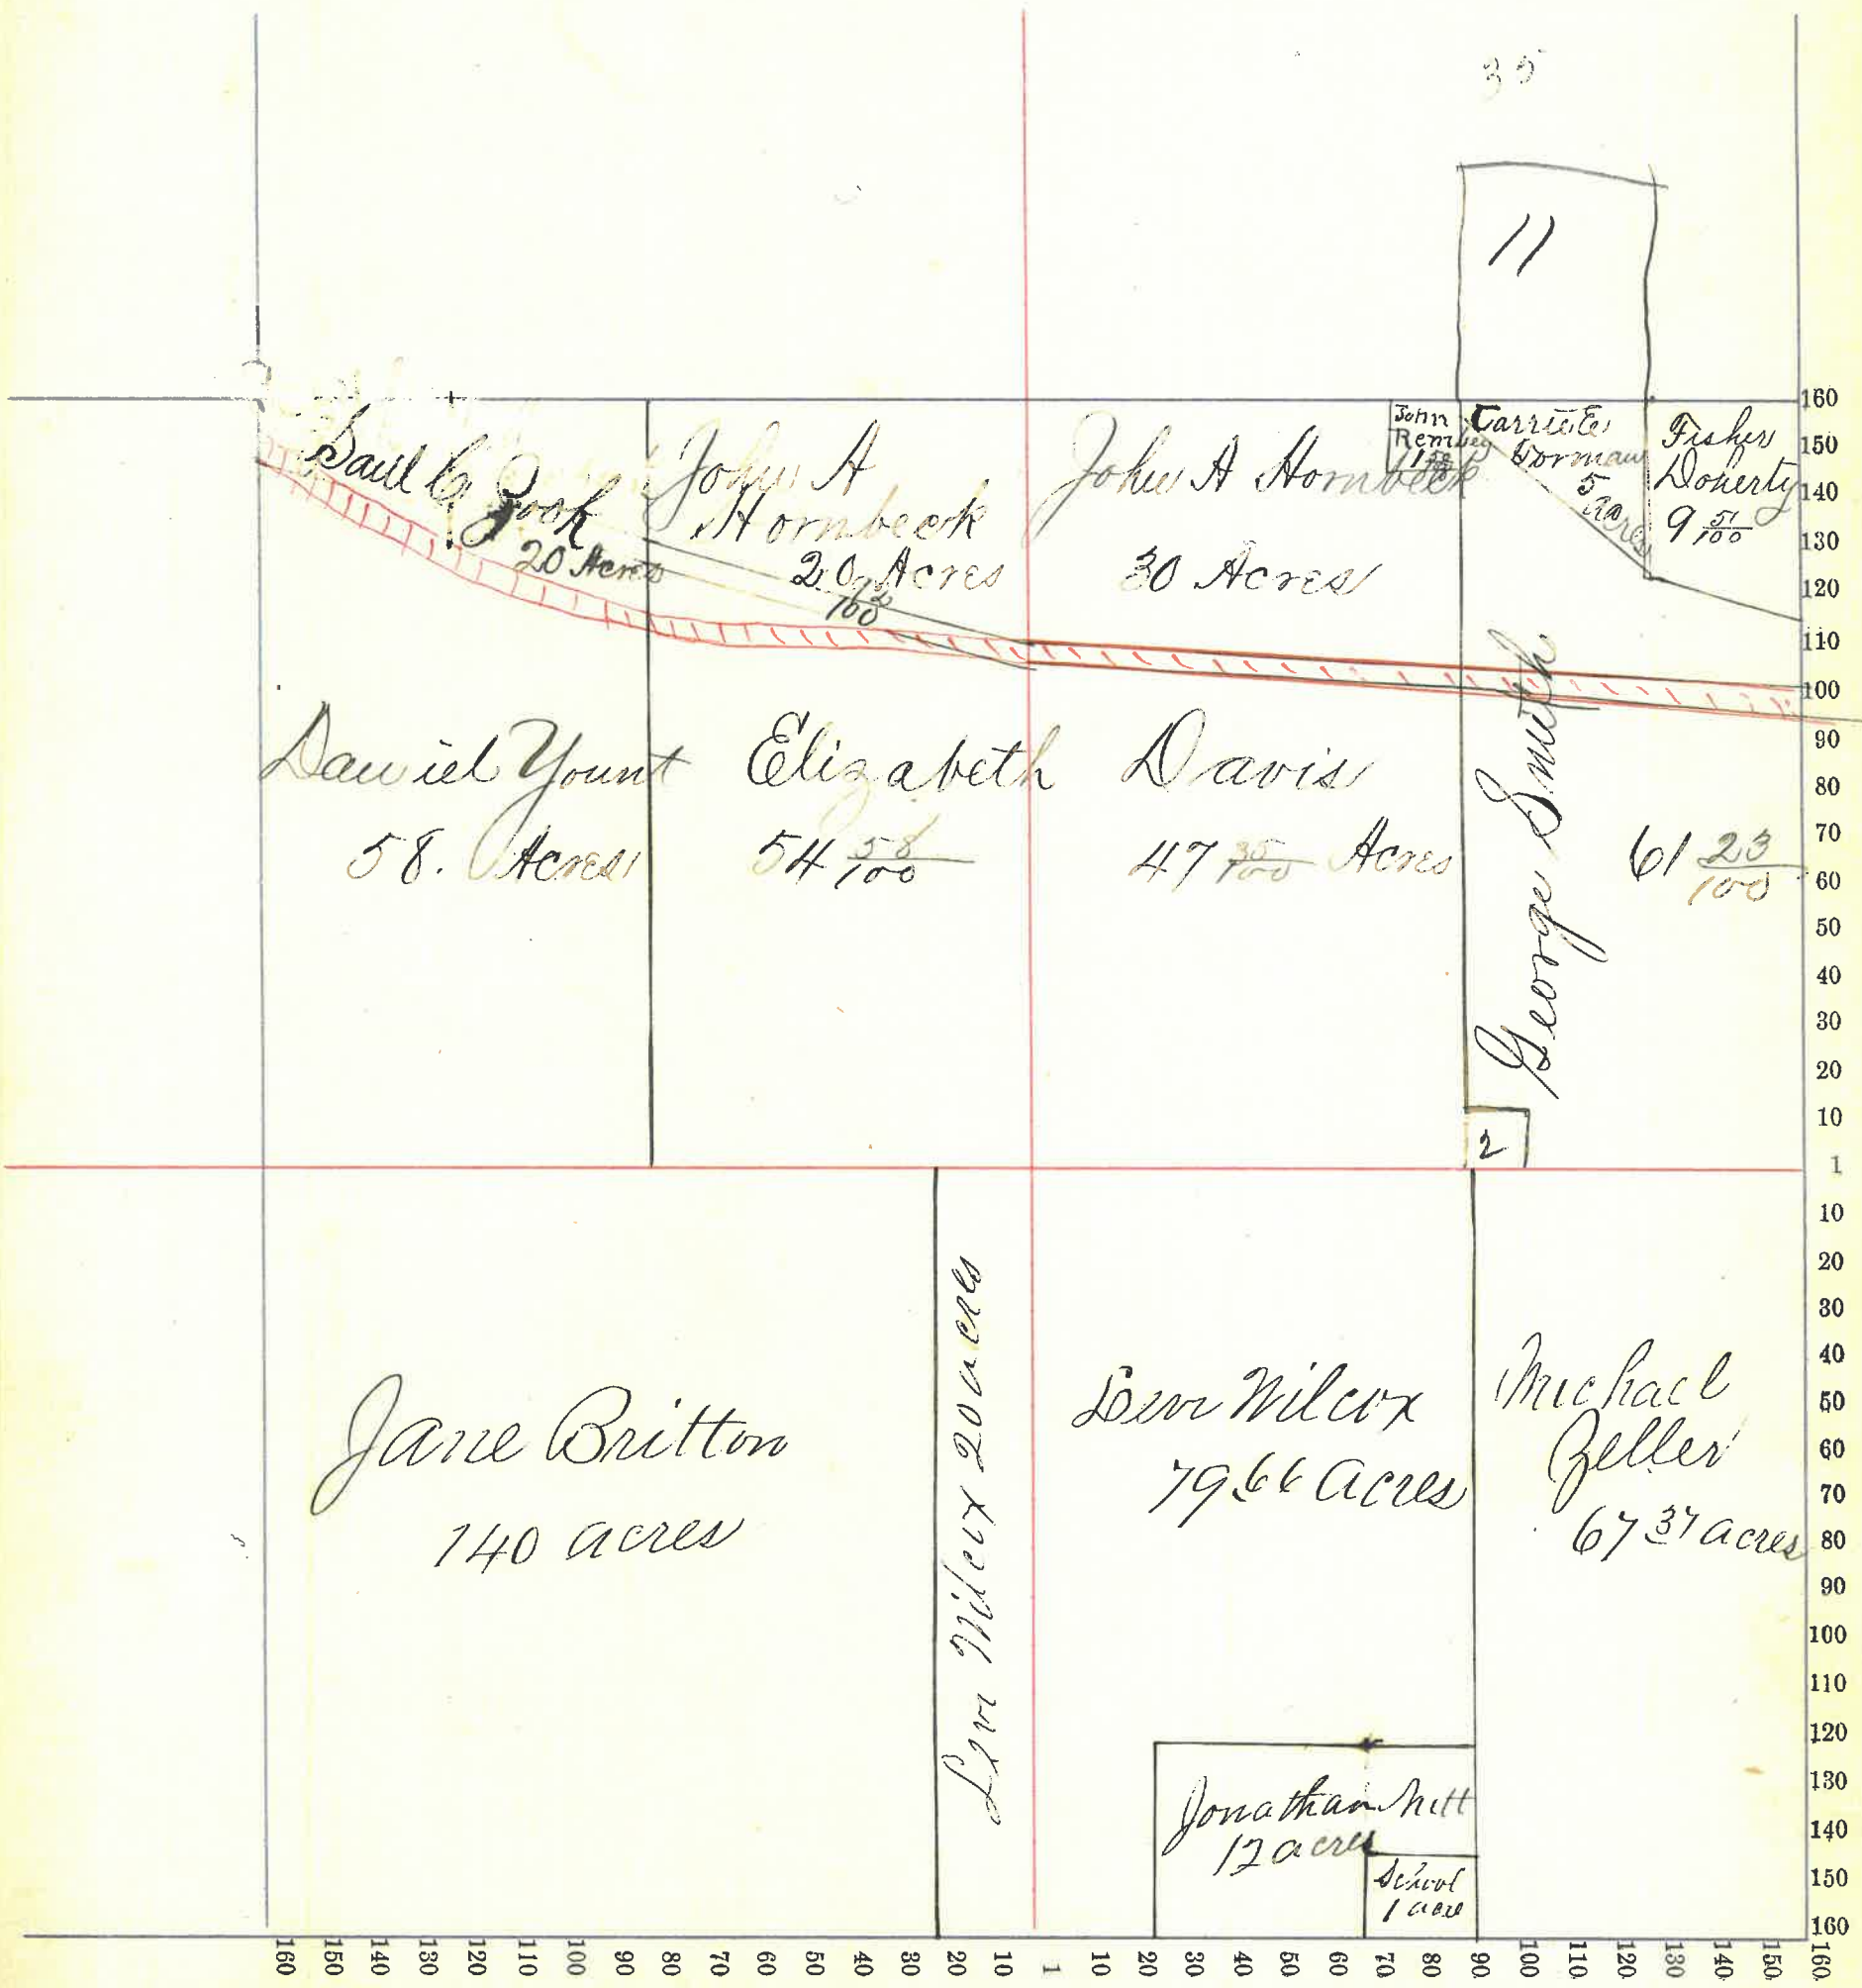 35
11
John
Remley
1 50/100
Fisher
Doherty
9 51/100
5
acres
John A
Hornbeck
20 Acres
John A Hornbeck
30 Acres
Zook
20 Acres
Daniel Yount
58. Acres
Elizabeth Davis
54 58/100
47 35/100 Acres
George Smith
61 23/100
2
Jane Britton
140 acres
Levi Wilcox 20 acres
Levi Wilcox
79.66 Acres
Michael
Zeller
67 37 acres
Jonathan
12 acres
School
1 acre
160
150
140
130
120
110
100
90
80
70
60
50
40
30
20
10
1
10
20
30
40
50
60
70
80
90
100
110
120
130
140
150
160
160 150 140 130 120 110 100 90 80 70 60 50 40 30 20 10 1 10 20 30 40 50 60 70 80 90 100 110 120 130 140 150 160